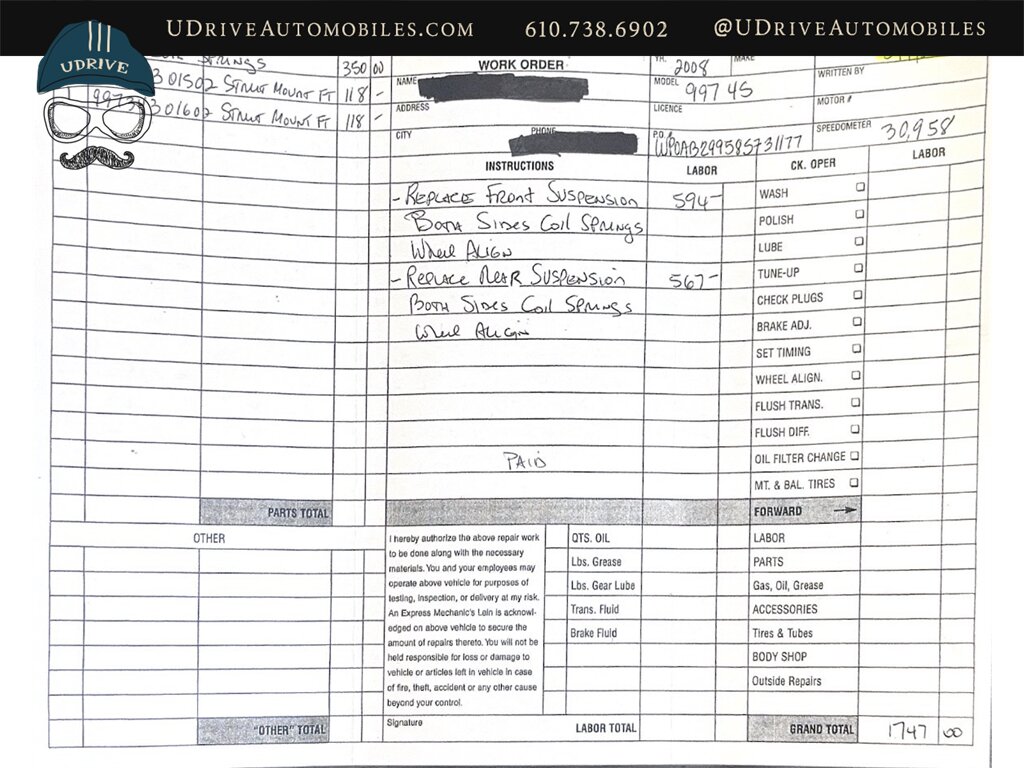 UDRIVEAUTOMOBILES.COM 610.738.6902 @UDRIVEAUTOMOBILES
UDRIVE
SPRINGS 350 00
301502 STRUT MOUNT FT 118 -
301602 STRUT MOUNT FT 118 -
WORK ORDER
YR. 2008 MAKE
WRITTEN BY
NAME
MODEL 997 4S
ADDRESS
LICENCE
MOTOR #
CITY
PHONE
P.O. # WP0AB29958S731177
SPEEDOMETER 30,958
INSTRUCTIONS LABOR CK. OPER LABOR
- REPLACE FRONT SUSPENSION 594-
BOTH SIDES COIL SPRINGS
WHEEL ALIGN
- REPLACE REAR SUSPENSION 567-
BOTH SIDES COIL SPRINGS
WHEEL ALIGN
PAID
WASH
POLISH
LUBE
TUNE-UP
CHECK PLUGS
BRAKE ADJ.
SET TIMING
WHEEL ALIGN.
FLUSH TRANS.
FLUSH DIFF.
OIL FILTER CHANGE
MT. & BAL. TIRES
PARTS TOTAL
FORWARD
OTHER
I hereby authorize the above repair work
to be done along with the necessary
materials. You and your employees may
operate above vehicle for purposes of
testing, inspection, or delivery at my risk.
An Express Mechanic's Lein is acknowl-
edged on above vehicle to secure the
amount of repairs thereto. You will not be
held responsible for loss or damage to
vehicle or articles left in vehicle in case
of fire, theft, accident or any other cause
beyond your control.
Signature
QTS. OIL
Lbs. Grease
Lbs. Gear Lube
Trans. Fluid
Brake Fluid
LABOR
PARTS
Gas, Oil, Grease
ACCESSORIES
Tires & Tubes
BODY SHOP
Outside Repairs
"OTHER" TOTAL
LABOR TOTAL
GRAND TOTAL 1747 00